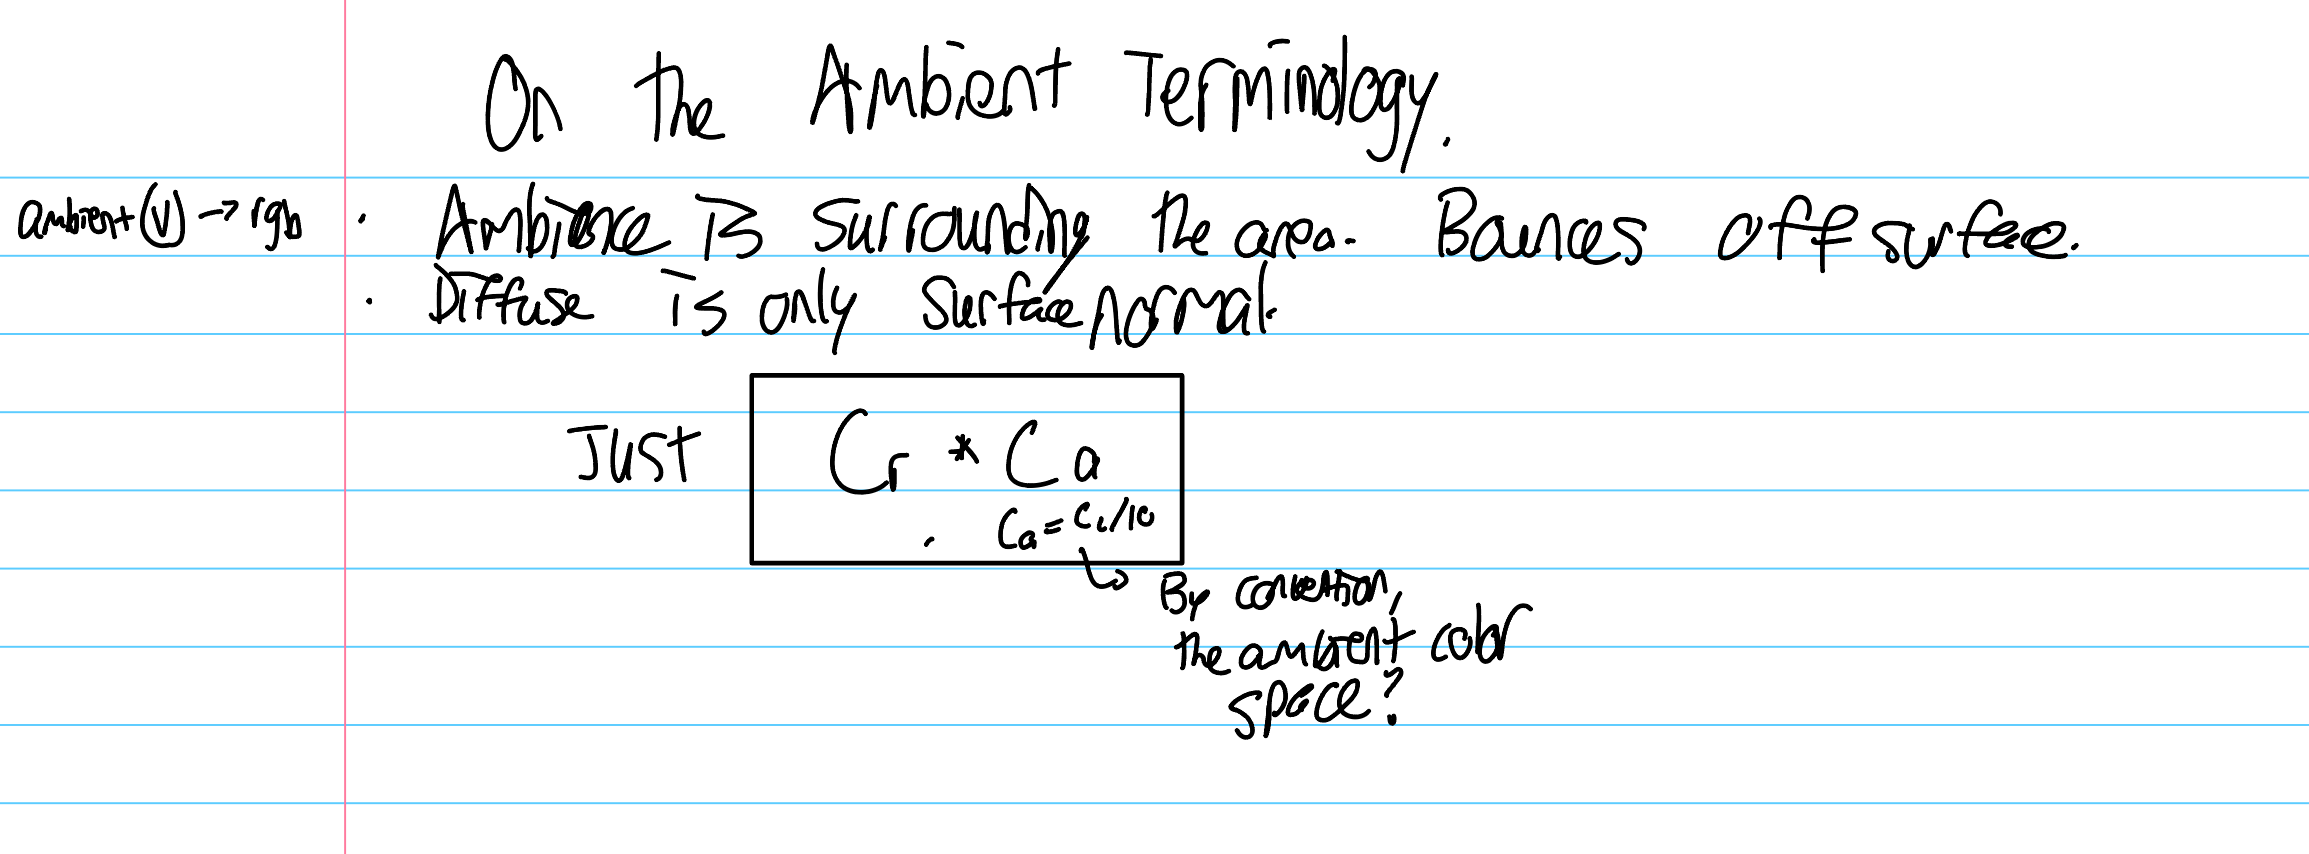 On the Ambient Terminology.
ambient(v) → rgb
· Ambience is surrounding the area. Bounces off surface.
· Diffuse is only surface normal.
Just Cr * Ca
Ca = CL/10
By convention,
the ambient color
space?